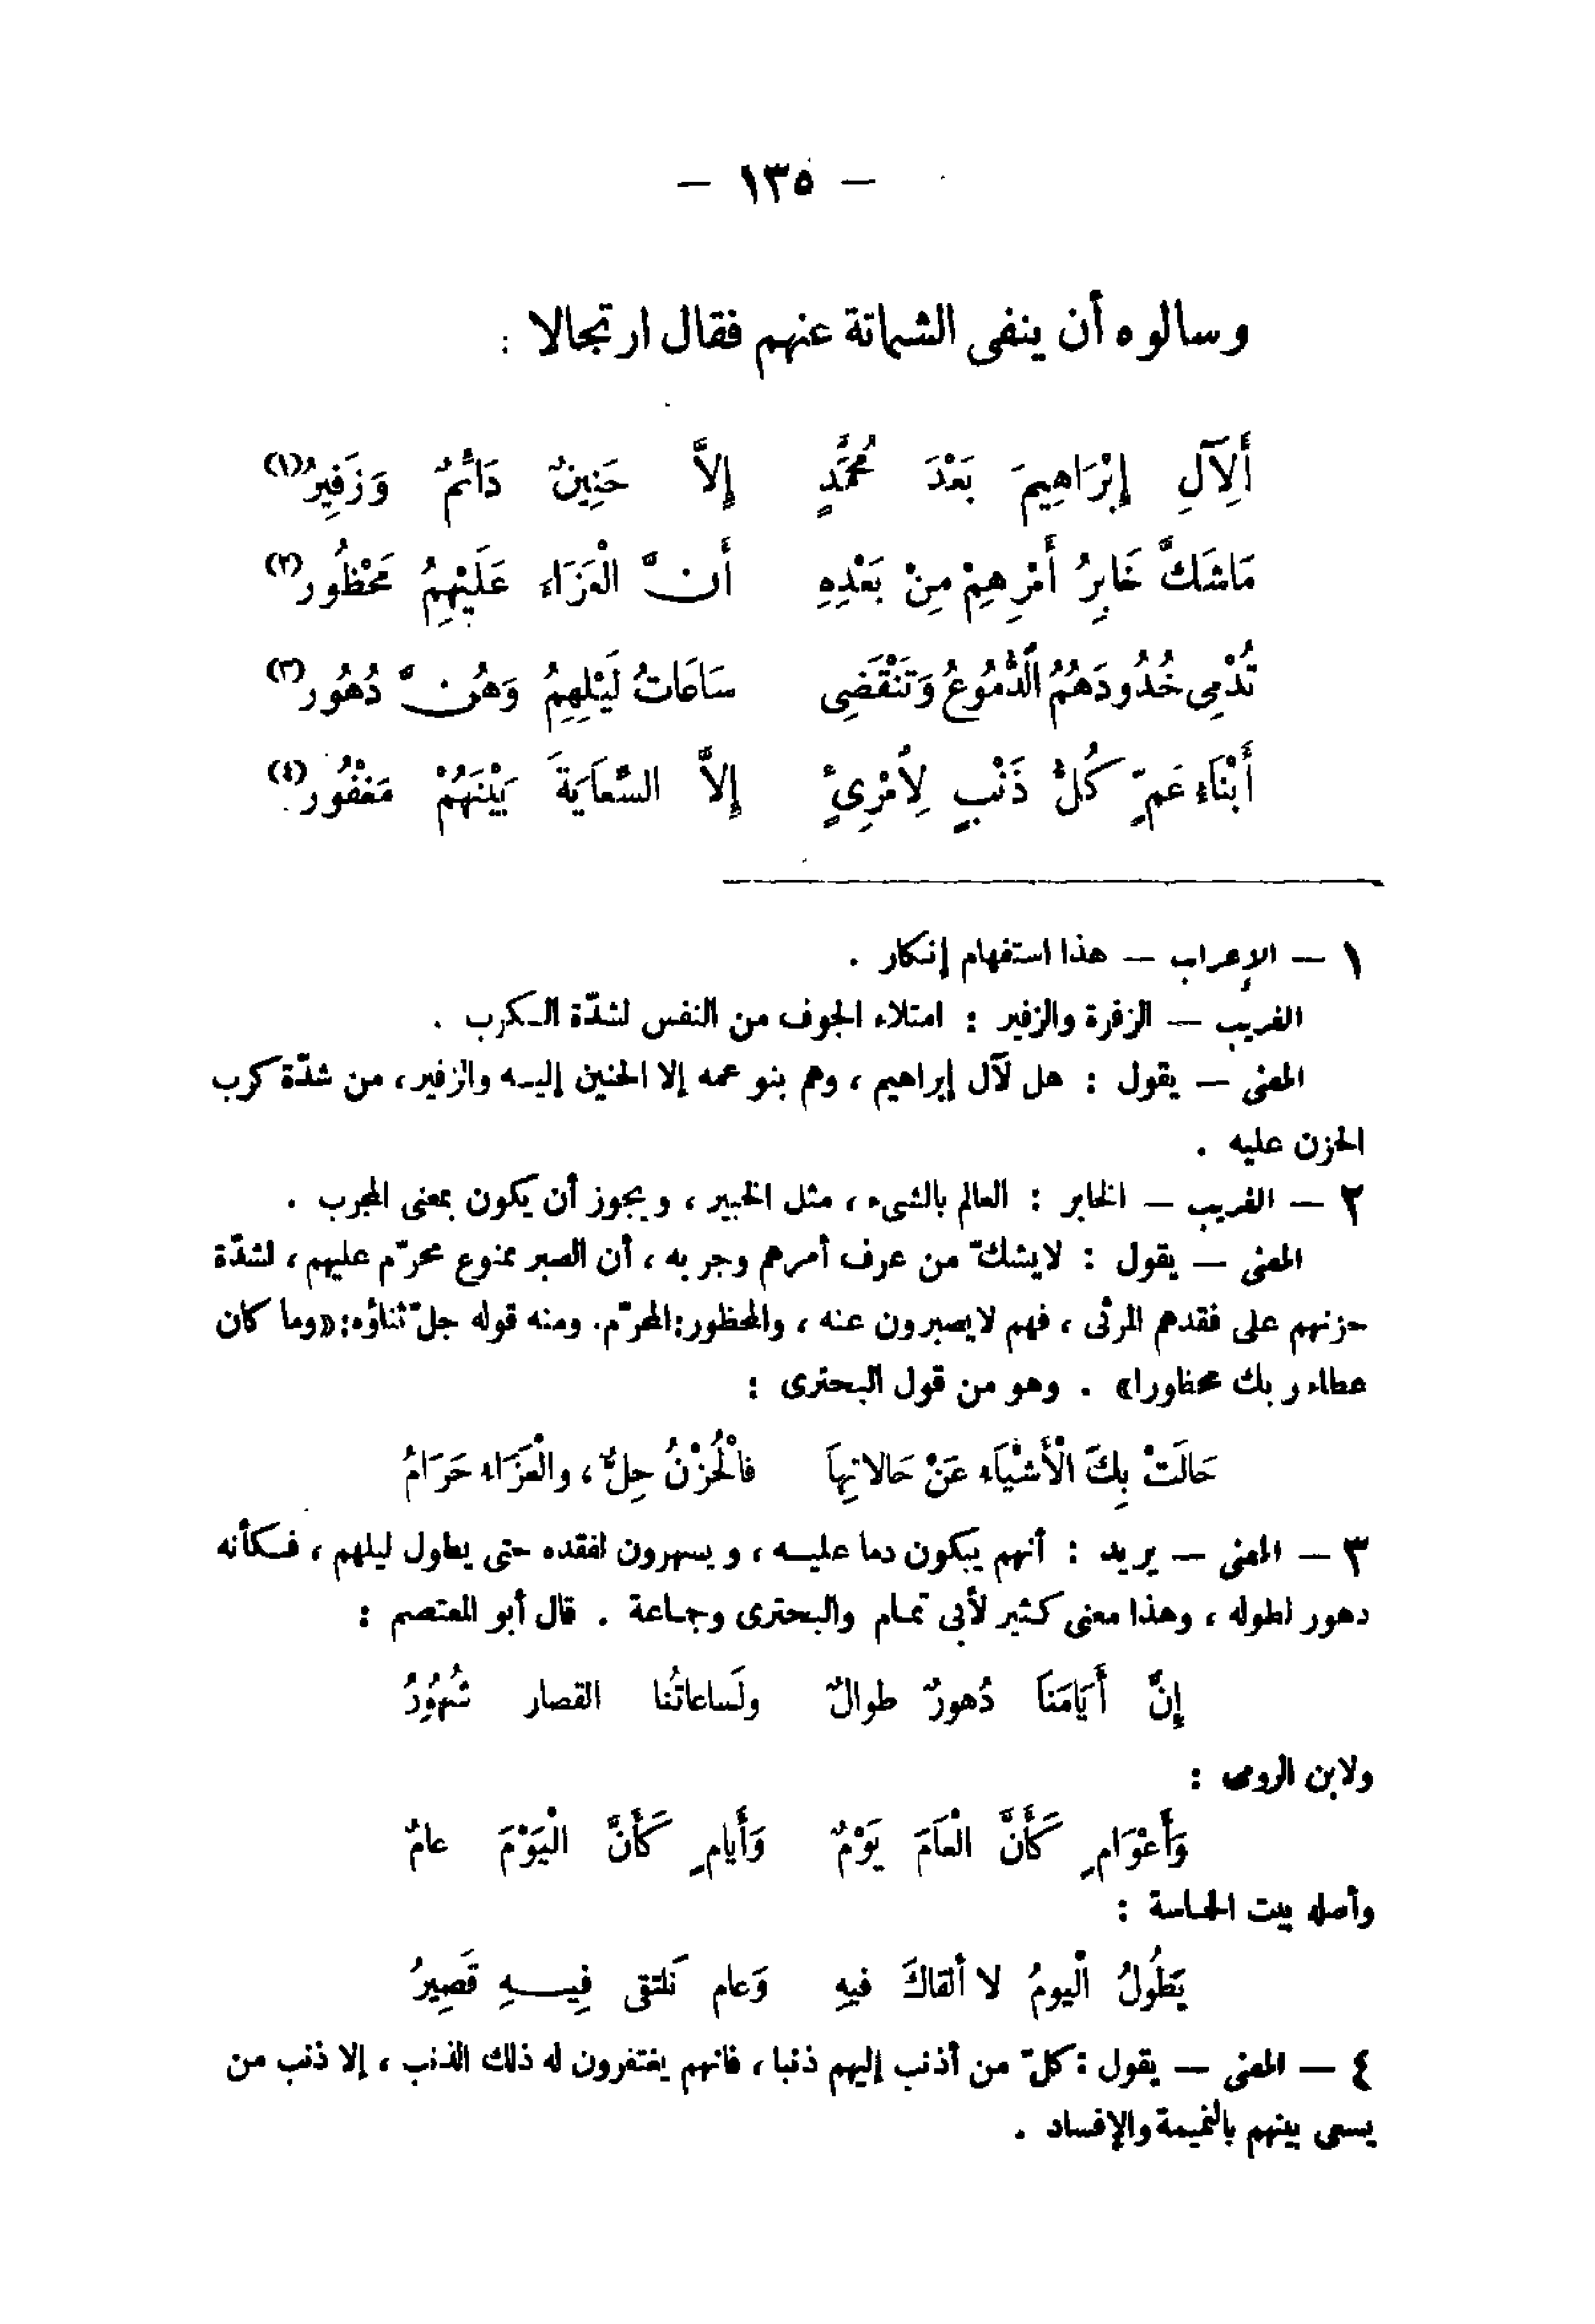 — ١٣٥ —
وسالوه أن ينفى الشماتة عنهم فقال ارتجالا :
أَلِآلِ إِبْرَاهِيمَ بَعْدَ مُحَمَّدٍ إِلاَّ حَنِينٌ دَائمٌ وَزَفِيرُ(١)
مَاشَكَّ خَابِرُ أَمْرِهِمْ مِنْ بَعْدِهِ أَنَّ الْعَزَاءَ عَلَيْهِمُ مَحْظُورُ(٢)
تُدْمِى خُدُودَهُمُ الدُّمُوعُ وَتَنْقَضِى سَاعَاتُ لَيْلِهِمُ وَهُنَّ دُهُورُ(٣)
أَبْنَاءُ عَمٍّ كُلُّ ذَنْبٍ لِأُمْرِئٍ إِلاَّ السِّعَايَةَ بَيْنَهُمْ مَغْفُورُ(٤)
١ — الإعراب — هذا استفهام إنكار .
الغريب — الزفرة والزفير : امتلاء الجوف من النفس لشدّة الكرب .
المعنى — يقول : هل لآل إبراهيم ، وهم بنو عمه إلا الحنين إليه والزفير ، من شدّة كرب
الحزن عليه .
٢ — الغريب — الخابر : العالم بالشىء ، مثل الخبير ، ويجوز أن يكون بمعنى المجرب .
المعنى — يقول : لايشكّ من عرف أمرهم وجربه ، أن الصبر ممنوع محرّم عليهم ، لشدّة
حزنهم على فقدهم المرثى ، فهم لايصبرون عنه ، والمحظور : المحرّم . ومنه قوله جلّ ثناؤه : «وما كان
عطاء ربك محظورا» . وهو من قول البحترى :
حَالَتْ بِكَ الْأَشْيَاءُ عَنْ حَالاتِهاَ فالْحُزْنُ حِلٌّ ، والْعَزَاءُ حَرَامُ
٣ — المعنى — يريد : أنهم يبكون دما عليه ، ويسهرون لفقده حتى يطول ليلهم ، فكأنه
دهور لطوله ، وهذا معنى كثير لأبى تمام والبحترى وجماعة . قال أبو المعتصم :
إِنَّ أَيَّامَنَا دُهورٌ طوالٌ ولَساعاتُنا القصار شُهُورُ
ولابن الرومى :
وَأَعْوَامٍ كَأَنَّ الْعَامَ يَوْمٌ وَأَيامٍ كَأَنَّ الْيَوْمَ عامُ
وأصله بيت الحماسة :
يَطُولُ الْيومُ لا ألقاكَ فيهِ وَعام نَلتقى فِيهِ قَصِيرُ
٤ — المعنى — يقول : كلّ من أذنب إليهم ذنبا ، فانهم يغتفرون له ذلك الذنب ، إلا ذنب من
يسعى بينهم بالنميمة والإفساد .